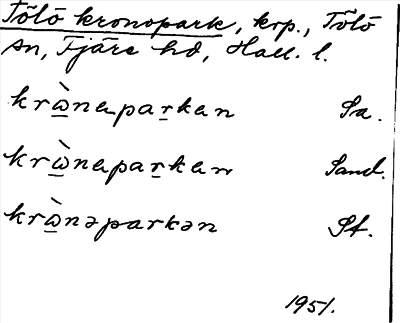 Tölö kronopark, krp., Tölö
sn, Fjäre hd, Hall. l.
krὼ̱naparkan Sa.
krὼ̱naparkan Sand.
krὼ̱nəparkən St.
1951.